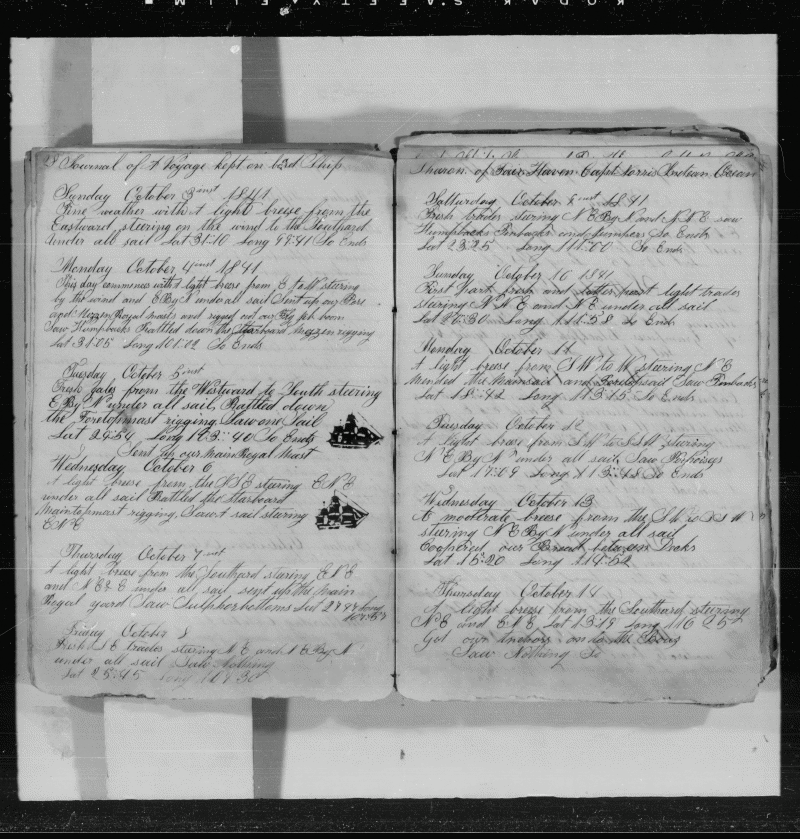 KODAK SAFETY FILM
28 Journal of A Voyage kept on bord Ship
Sunday October 3 inst 1841
Fine weather with A light breese from the
Eastward, steering on the wind to the Southard
under all sail Lat 31-10 Long 99-41 So Ends
Monday October 4 inst 1841
This day commences with light brees from E to N sturing
by the wind and E By N under all sail Sent up our Fore
and Mizzen Royal masts and rigged out our Fly jib boom
Saw Humpbacks Rattled down the Starboard Mizzen rigging
Lat 31:05 Long 101:02 So Ends
Tuesday October 5 inst
Fresh gales from the Westward to South sturing
E By N under all sail, Rattled down
the Foretopmast rigging Saw one Sail
Lat 29:54 Long 103:40 So Ends
Sent up our Main Royal Mast
Wednesday October 6
A light breese from the SSE sturing ENE
under all sail Rattled the Starboard
Maintopmast rigging, Saw A sail sturing
ENE
Thursday October 7 inst
A light breese from the Southard sturing ENE
and NE&E under all sail sent up the Main
Royal yard Saw Sulphorbottoms Lat 27 48 Long
107:57
Friday October 8
Fresh SE trades sturing NE and NE By N
under all sail Saw Nothing
Lat 25:45 Long 109 30
Sharon of Fair Haven Capt Norris Indian Ocean
Satturday October 9 inst 1841
Fresh trades sturing NE By N and NNE saw
Humpbacks Finbacks and jumpers So Ends
Lat 23:25 Long 111:00 So Ends
Sunday October 10 1841
First part fresh and latter part light trades
sturing NNE and NE under all sail
Lat 20:30 Long 111:58 So Ends
Monday October 11
A light brees from SW to W sturing NE
Mended the Mainsail and Foretopsail Saw Finbacks
Lat 18:42 Long 113:15 So Ends
Tuesday October 12
A light brees from SW to SSW sturing
NE By N under all sail Saw Porpoises
Lat 17:09 Long 113:48 So Ends
Wednesday October 13
A moderate breese from the SW to SSW
sturing NE By N under all sail
Coopered our Bread between Decks
Lat 15:20 Long 114:52
Thursday October 14
A light breese from the Southard sturing
NE and ENE Lat 13:19 Long 116 25
Got our Anchors on to the Bows
Saw Nothing So